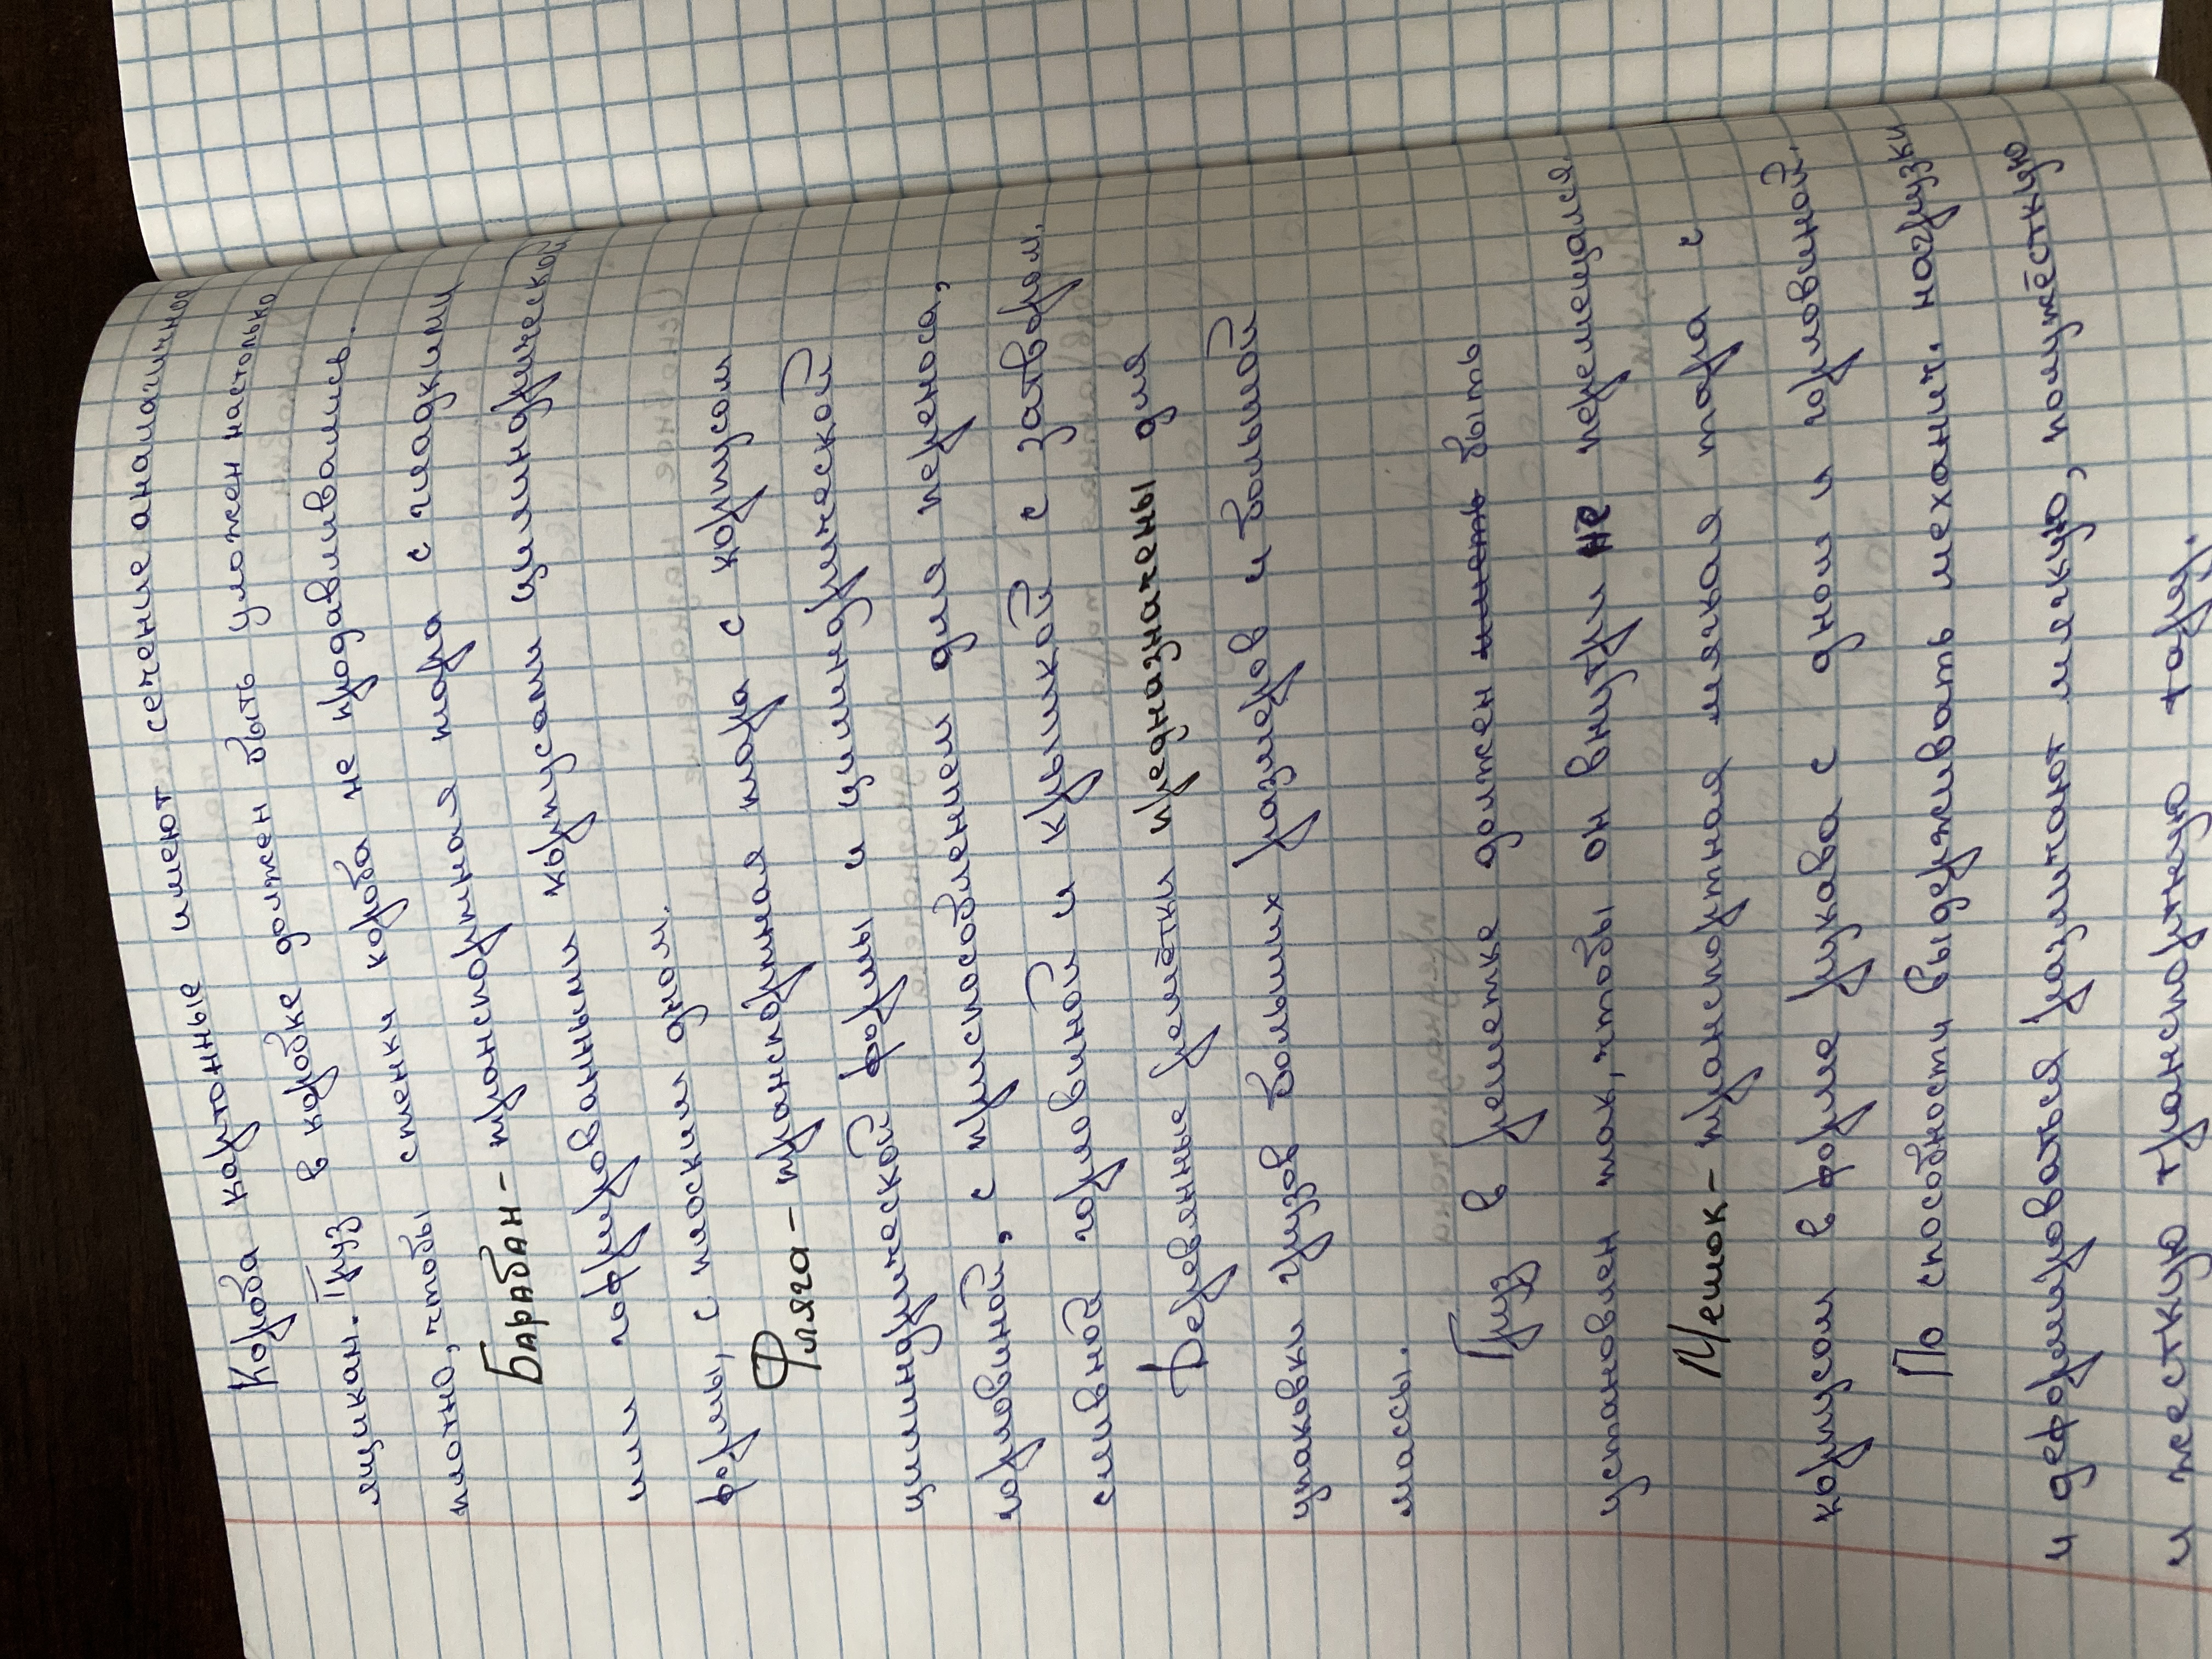 Короба картонные имеют сечение аналагичное
ящикам. Груз в коробке должен быть уложен настолько
плотно, чтобы стенки короба не продавливались.
Барабан - транспортная тара с гладкими
или гофрированными корпусом цилиндрической
формы, с плоским дном.
Фляга - транспортная тара с корпусом
цилиндрической формы и цилиндрической
горловиной, с приспособлением для переноса,
сливной горловиной и крышкой с затвором.
Деревянные решётки предназначены для
упаковки грузов больших размеров и большой
массы.
Груз в решетке должен иметь быть
установлен так, чтобы он внутри не перемещался.
Мешок - транспортная мягкая тара с
корпусом в форме рукава с дном и горловиной.
По способности выдерживать механич. нагрузки
и деформироваться различают мягкую, полужёсткую
и жесткую транспортную тару.